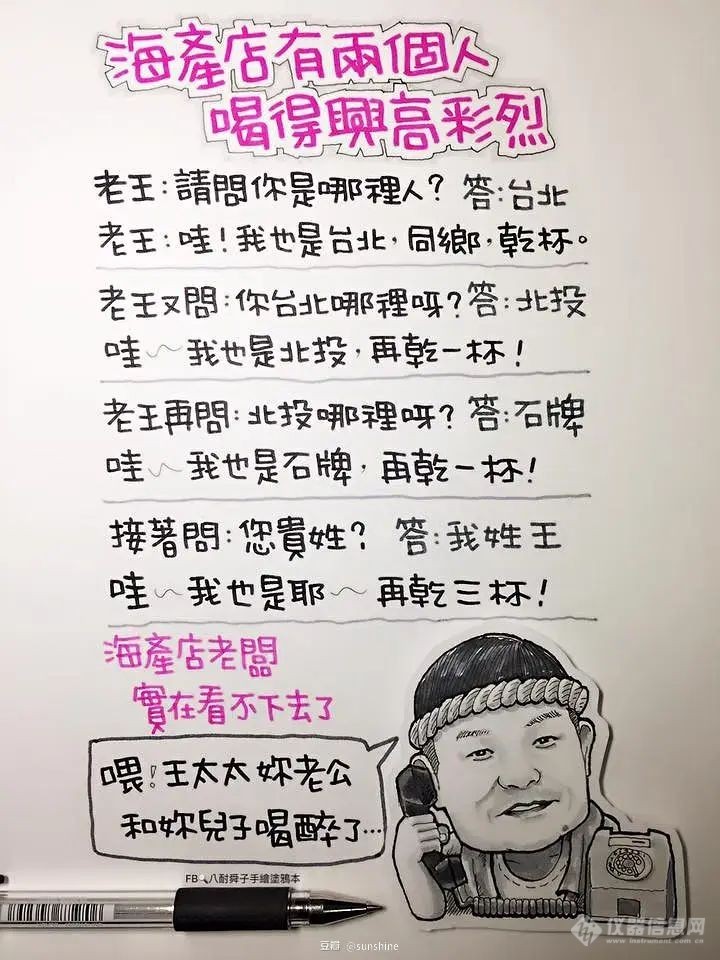 海產店有兩個人
喝得興高彩烈
老王:請問你是哪裡人? 答:台北
老王:哇!我也是台北,同鄉,乾杯。
老王又問:你台北哪裡呀?答:北投
哇~我也是北投,再乾一杯!
老王再問:北投哪裡呀? 答:石牌
哇~我也是石牌,再乾一杯!
接著問:您貴姓? 答:我姓王
哇~我也是耶~再乾三杯!
海產店老闆
實在看不下去了
喂!王太太妳老公
和妳兒子喝醉了...
FB 八耐舜子手繪塗鴉本
豆瓣 @sunshine
仪器信息网
www.instrument.com.cn